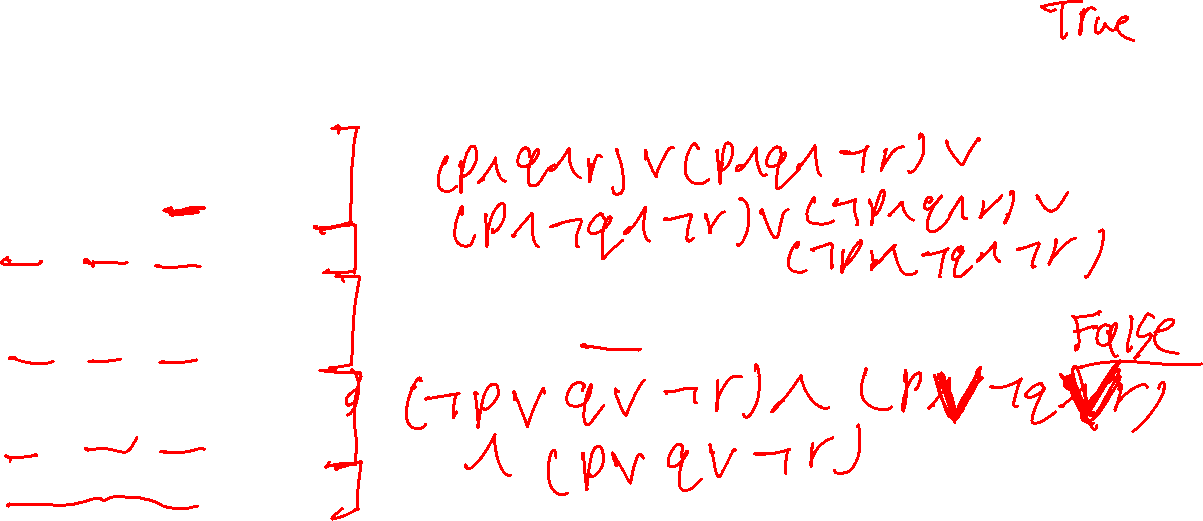 True
(p∧q∧r)∨(p∧q∧¬r)∨
(p∧¬q∧¬r)∨(¬p∧q∧r)∨
(¬p∧¬q∧¬r)
False
(¬p∨q∨¬r)∧(p∨¬q∨r)
∧(p∨q∨¬r)